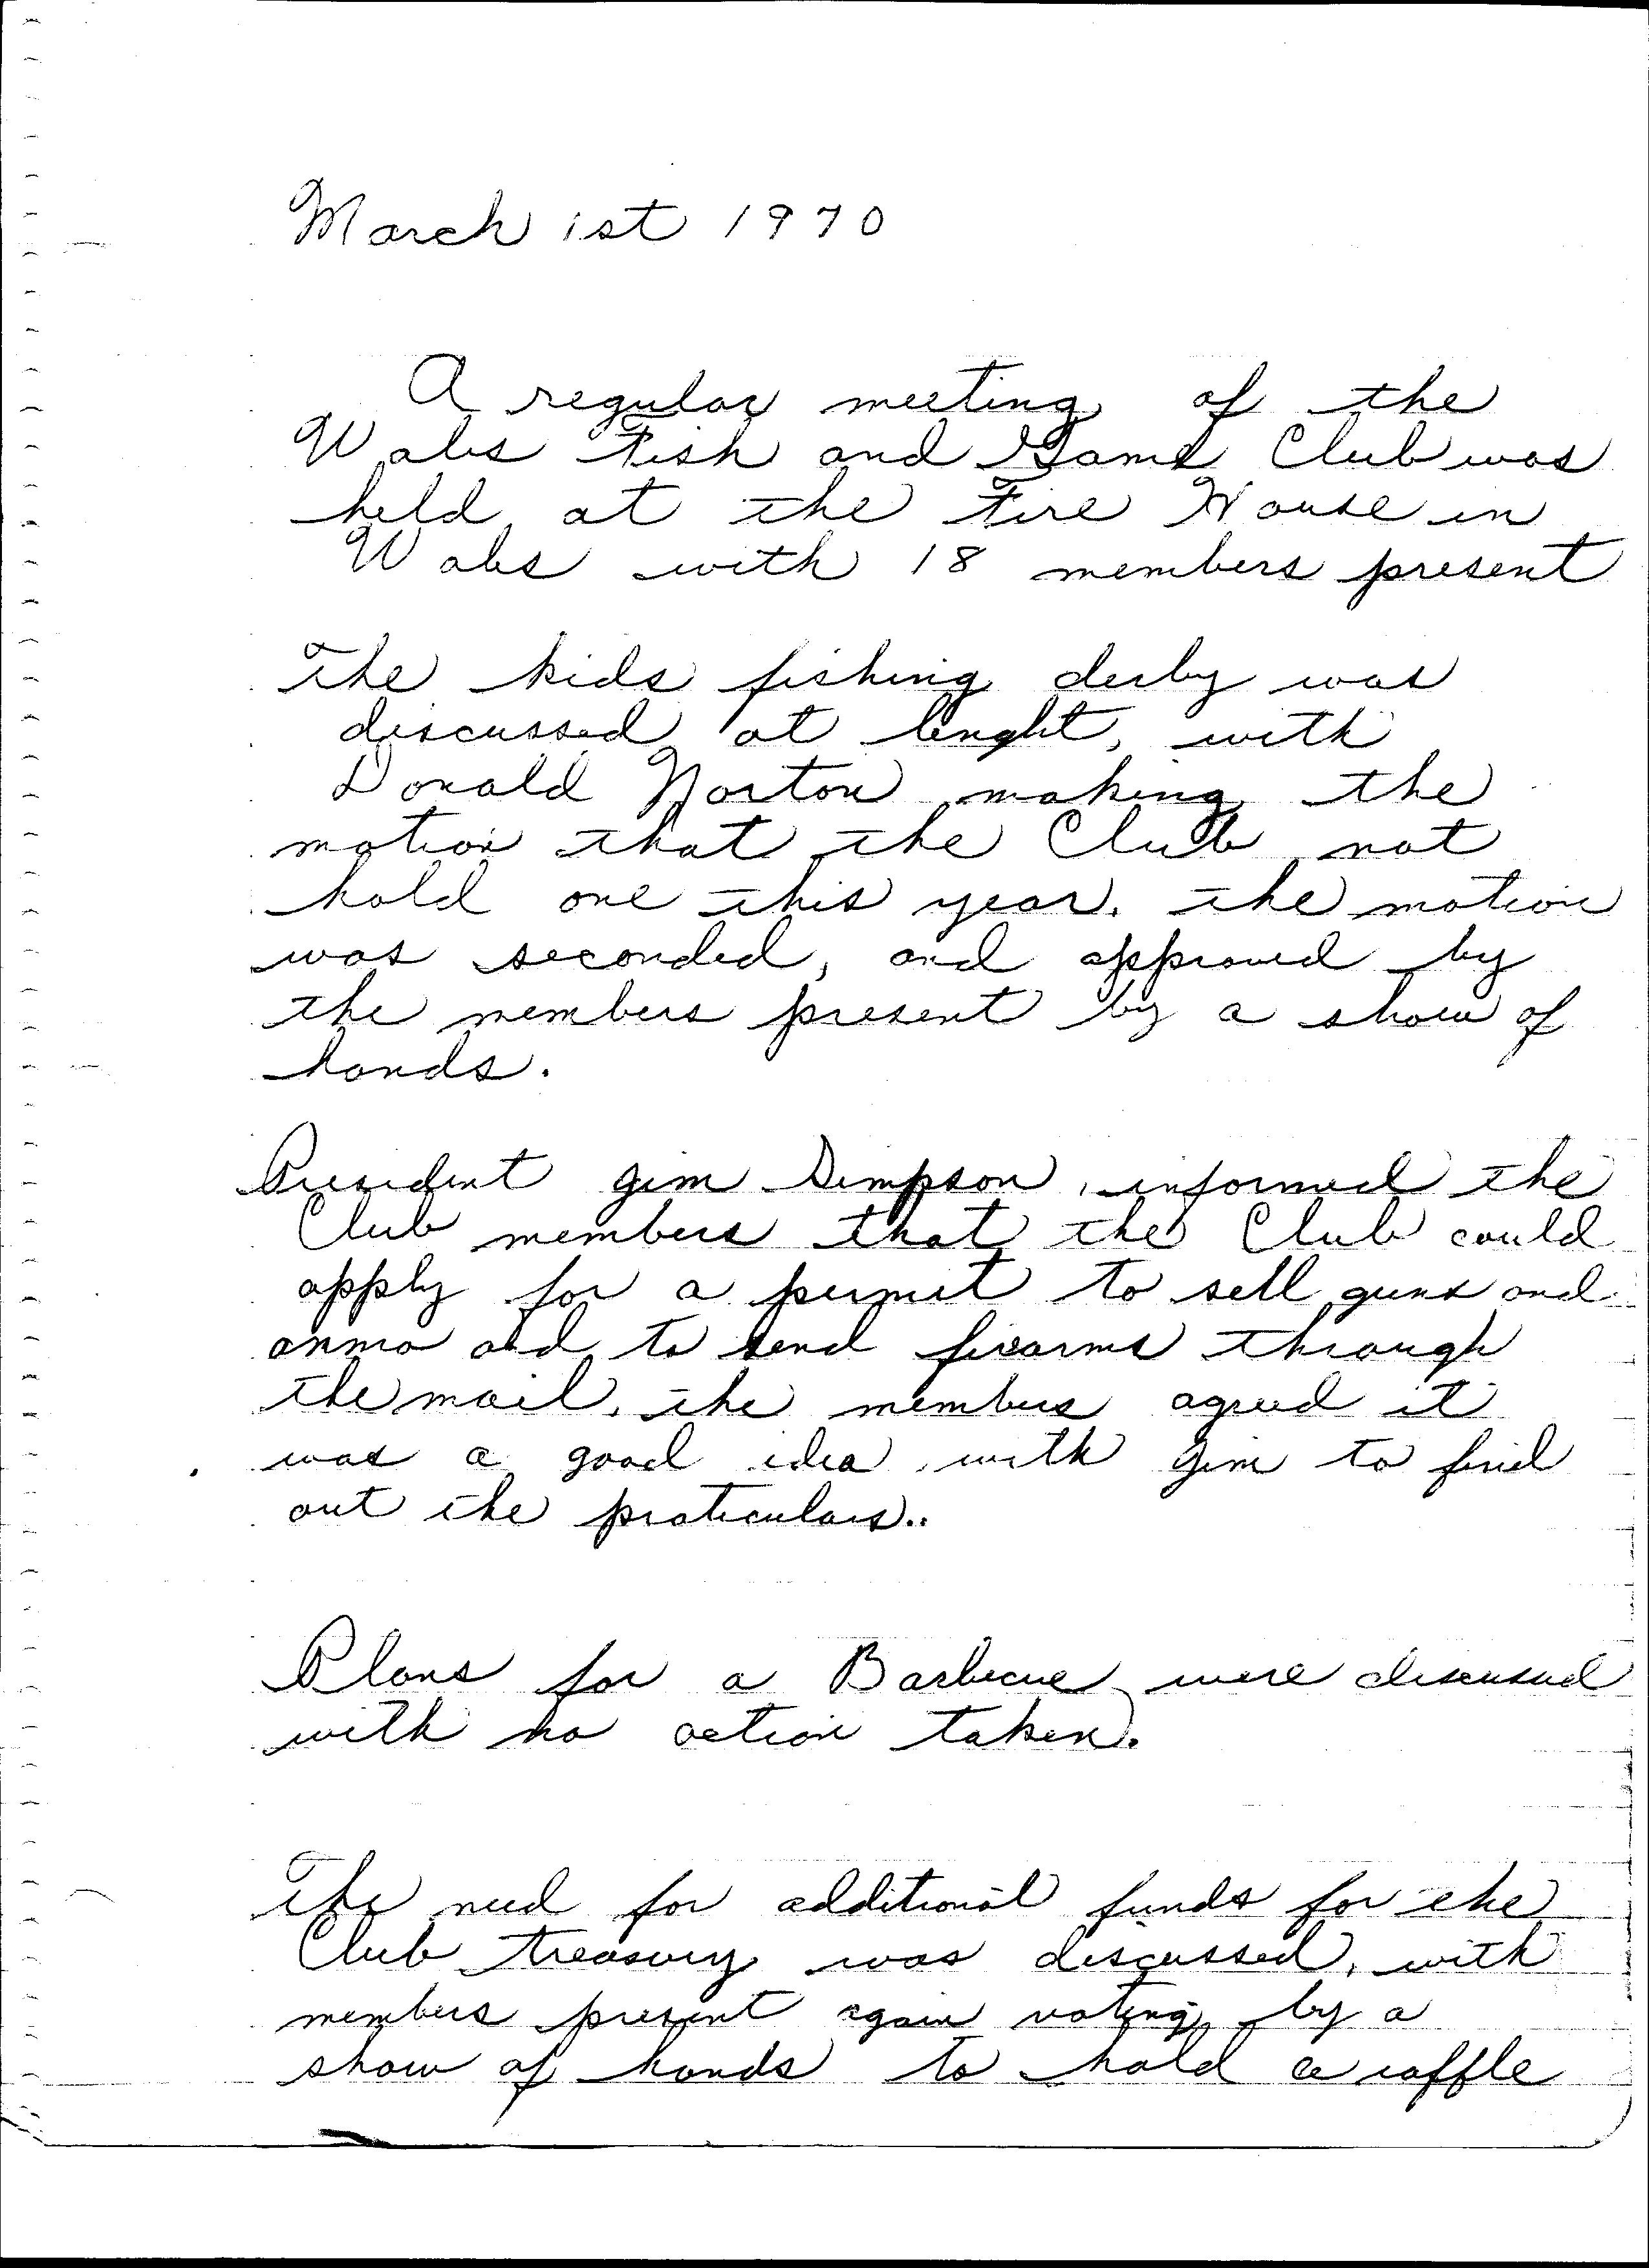 March 1st 1970
A regular meeting of the
Wales Fish and Game Club was
held at the Fire House in
Wales with 18 members present
The kids fishing derby was
discussed at lenght, with
Donald Norton making the
motion that the Club not
hold one this year. The motion
was seconded, and approved by
the members present by a show of
hands.
President Jim Simpson, informed the
Club members that the Club could
apply for a permit to sell guns and
ammo and to send firearms through
the mail. The members agreed it
was a good idea, with Jim to find
out the praticulars..
Plans for a Barbecue were discussed
with no action taken.
The need for additional funds for the
Club treasury was discussed, with
members present again voting by a
show of hands to hold a raffle